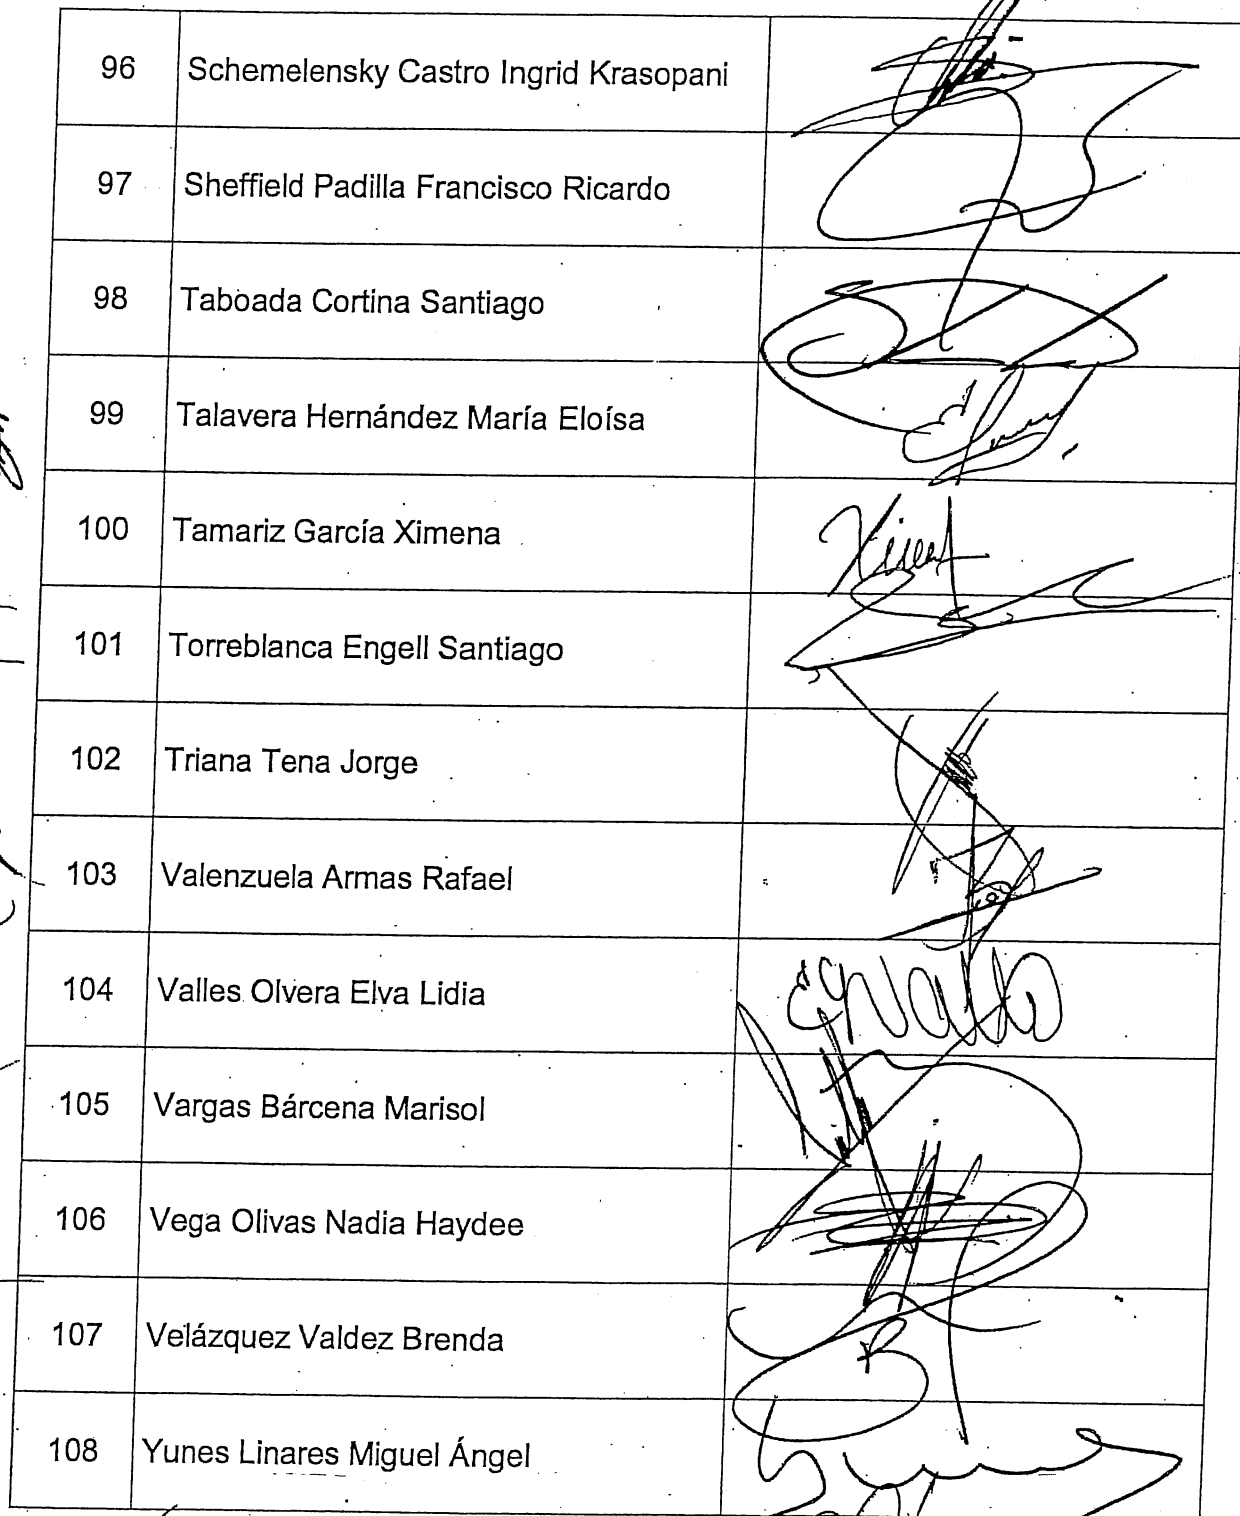 96 Schemelensky Castro Ingrid Krasopani
97 Sheffield Padilla Francisco Ricardo
98 Taboada Cortina Santiago
99 Talavera Hernández María Eloísa
100 Tamariz García Ximena
101 Torreblanca Engell Santiago
102 Triana Tena Jorge
103 Valenzuela Armas Rafael
104 Valles Olvera Elva Lidia
105 Vargas Bárcena Marisol
106 Vega Olivas Nadia Haydee
107 Velázquez Valdez Brenda
108 Yunes Linares Miguel Ángel